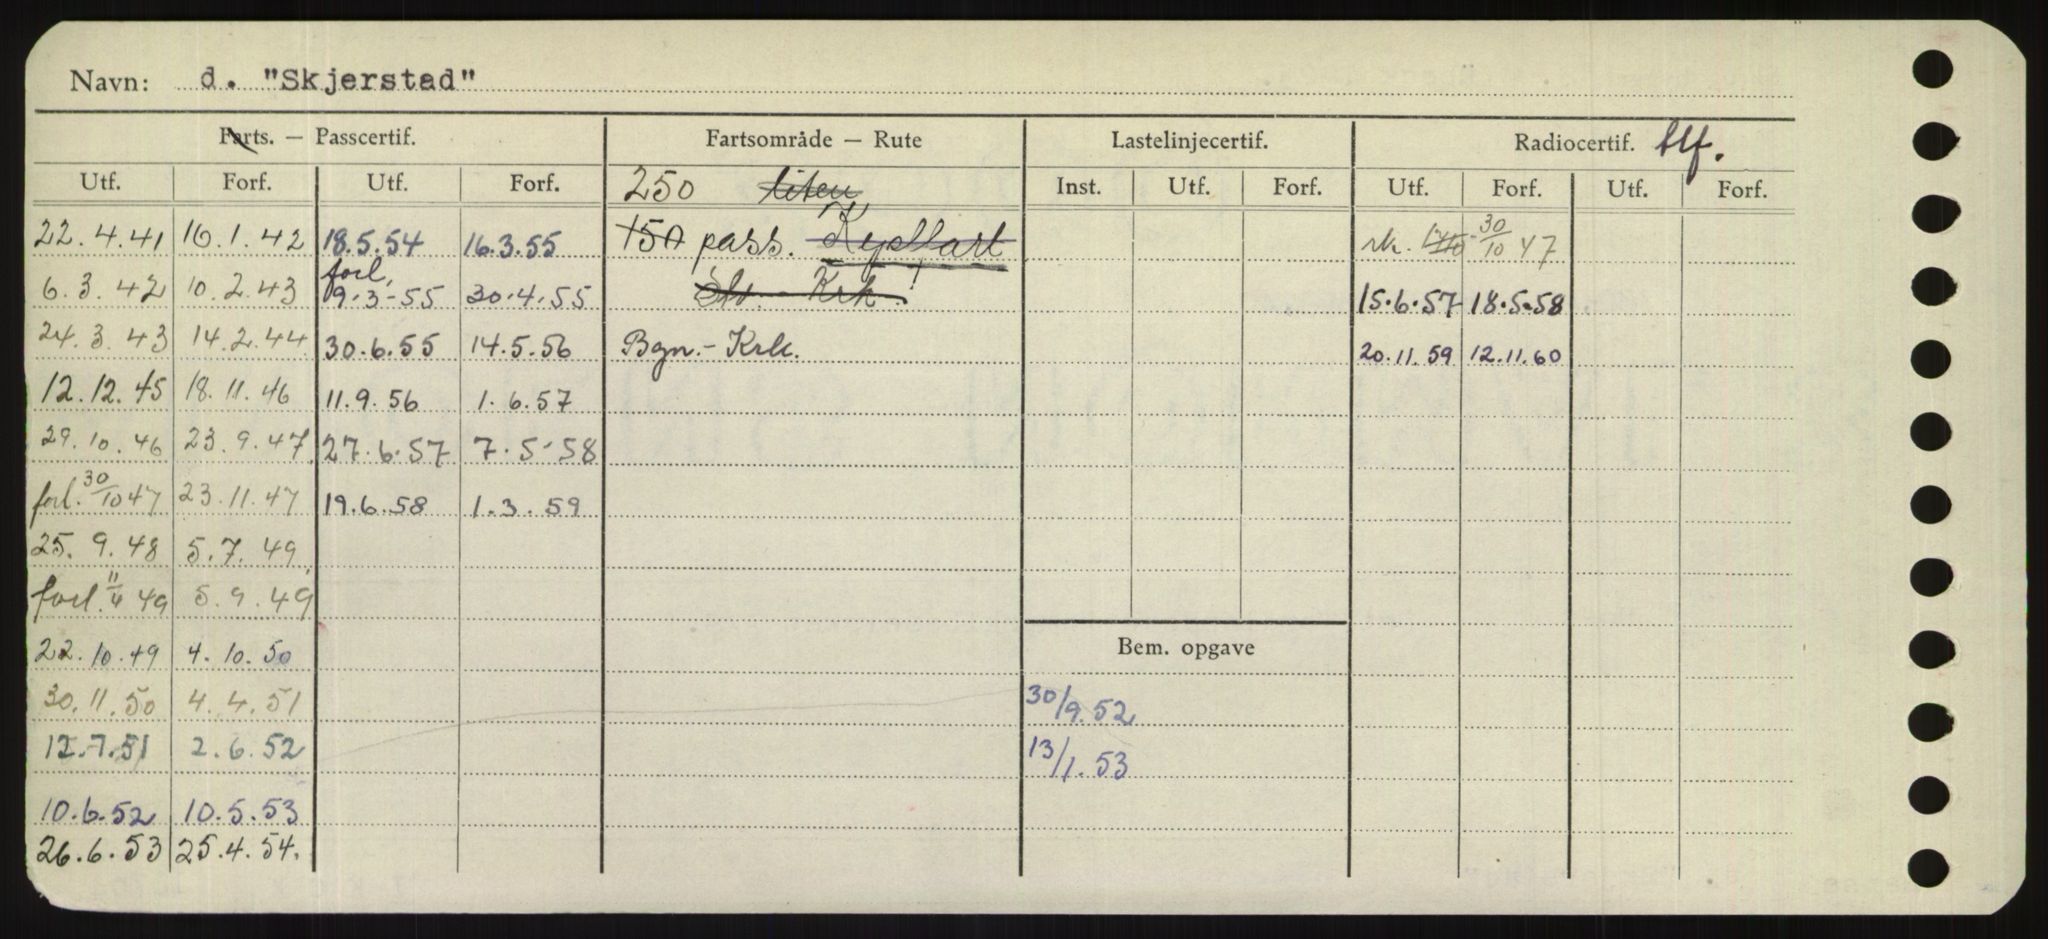 Navn: d. "Skjerstad"
Farts. — Passcertif. Fartsområde — Rute Lastelinjecertif. Radiocertif. tlf.
Utf. Forf. Utf. Forf. 250 liten Inst. Utf. Forf. Utf. Forf. Utf. Forf.
22.4.41 16.1.42 18.5.54 16.3.55 150 pass. Kystfart rk. 30/10 47
6.3.42 10.2.43 forl. 9-3-55 30.4.55 Krk. 15.6.57 18.5.58
24.3.43 14.2.44 30.6.55 14.5.56 Bgn.-Krk. 20.11.59 12.11.60
12.12.45 18.11.46 11.9.56 1.6.57
29.10.46 23.9.47 27.6.57 7.5.58
forl. 30/10 47 23.11.47 19.6.58 1.3.59
25.9.48 5.7.49
forl. 49 5.9.49
22.10.49 4.10.50 Bem. opgave
30.11.50 4.4.51 30/9.52
12.7.51 2.6.52 13/1.53
10.6.52 10.5.53
26.6.53 25.4.54.